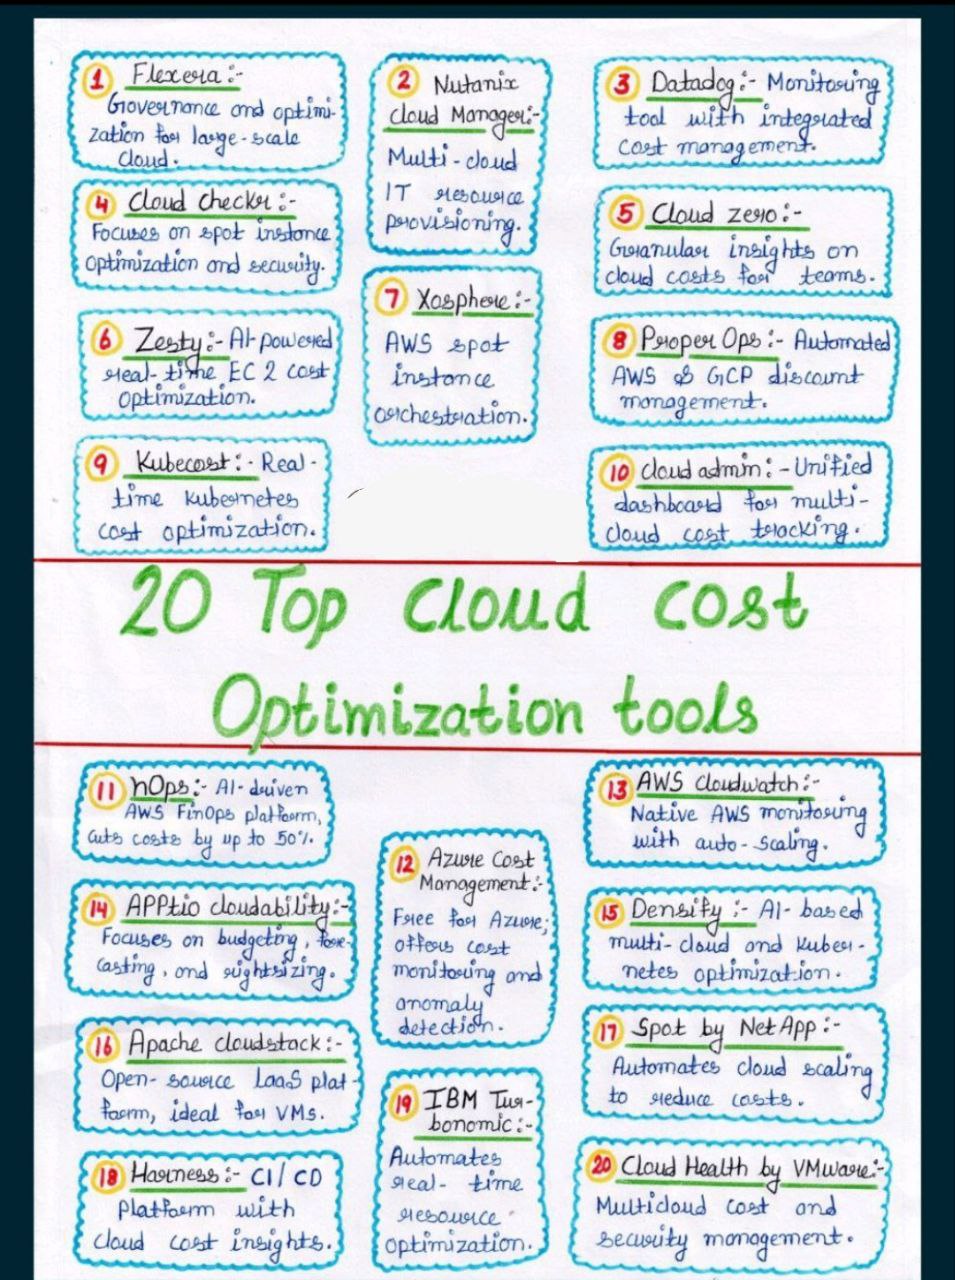 1 Flexera :-
Governance and optimi-
zation for large-scale
cloud.
2 Nutanix
cloud Manager:-
Multi-cloud
IT resource
provisioning.
3 Datadog:- Monitoring
tool with integrated
cost management.
4 Cloud checkr :-
Focuses on spot instance
optimization and security.
5 Cloud zero :-
Granular insights on
cloud costs for teams.
6 Zesty:- AI-powered
real-time EC 2 cost
optimization.
7 Xosphere :-
AWS spot
instance
orchestration.
8 ProperOps :- Automated
AWS & GCP discount
management.
9 Kubecost :- Real-
time Kubernetes
cost optimization.
10 cloud admin :- Unified
dashboard for multi-
cloud cost tracking.
20 Top Cloud cost
Optimization tools
11 nOps:- AI-driven
AWS FinOps platform,
cuts costs by up to 50%.
12 Azure Cost
Management:-
Free for Azure;
offers cost
monitoring and
anomaly
detection.
13 AWS Cloudwatch:-
Native AWS monitoring
with auto-scaling.
14 APPtio cloudability:-
Focuses on budgeting, fore-
casting, and rightsizing.
15 Densify :- AI-based
multi-cloud and Kuber-
netes optimization.
16 Apache cloudstack:-
Open-source IaaS plat-
form, ideal for VMs.
17 Spot by NetApp:-
Automates cloud scaling
to reduce costs.
18 Harness:- CI/CD
Platform with
cloud cost insights.
19 IBM Tur-
bonomic:-
Automates
real-time
resource
optimization.
20 Cloud Health by VMware:-
Multicloud cost and
security management.